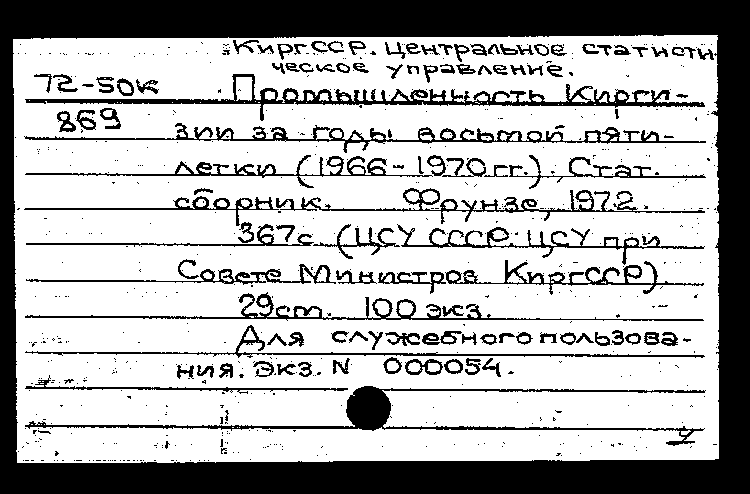 КиргССР. Центральное статисти
ческое управление.
72-50к Промышленность Кирги-
869 зии за годы восьмой пяти-
летки (1966-1970 гг.). Стат.
сборник. Фрунзе, 1972.
367с. (ЦСУ СССР. ЦСУ при
Совете Министров КиргССР)
29cm. 100 экз.
Для служебного пользова-
ния. Экз. N 000054.